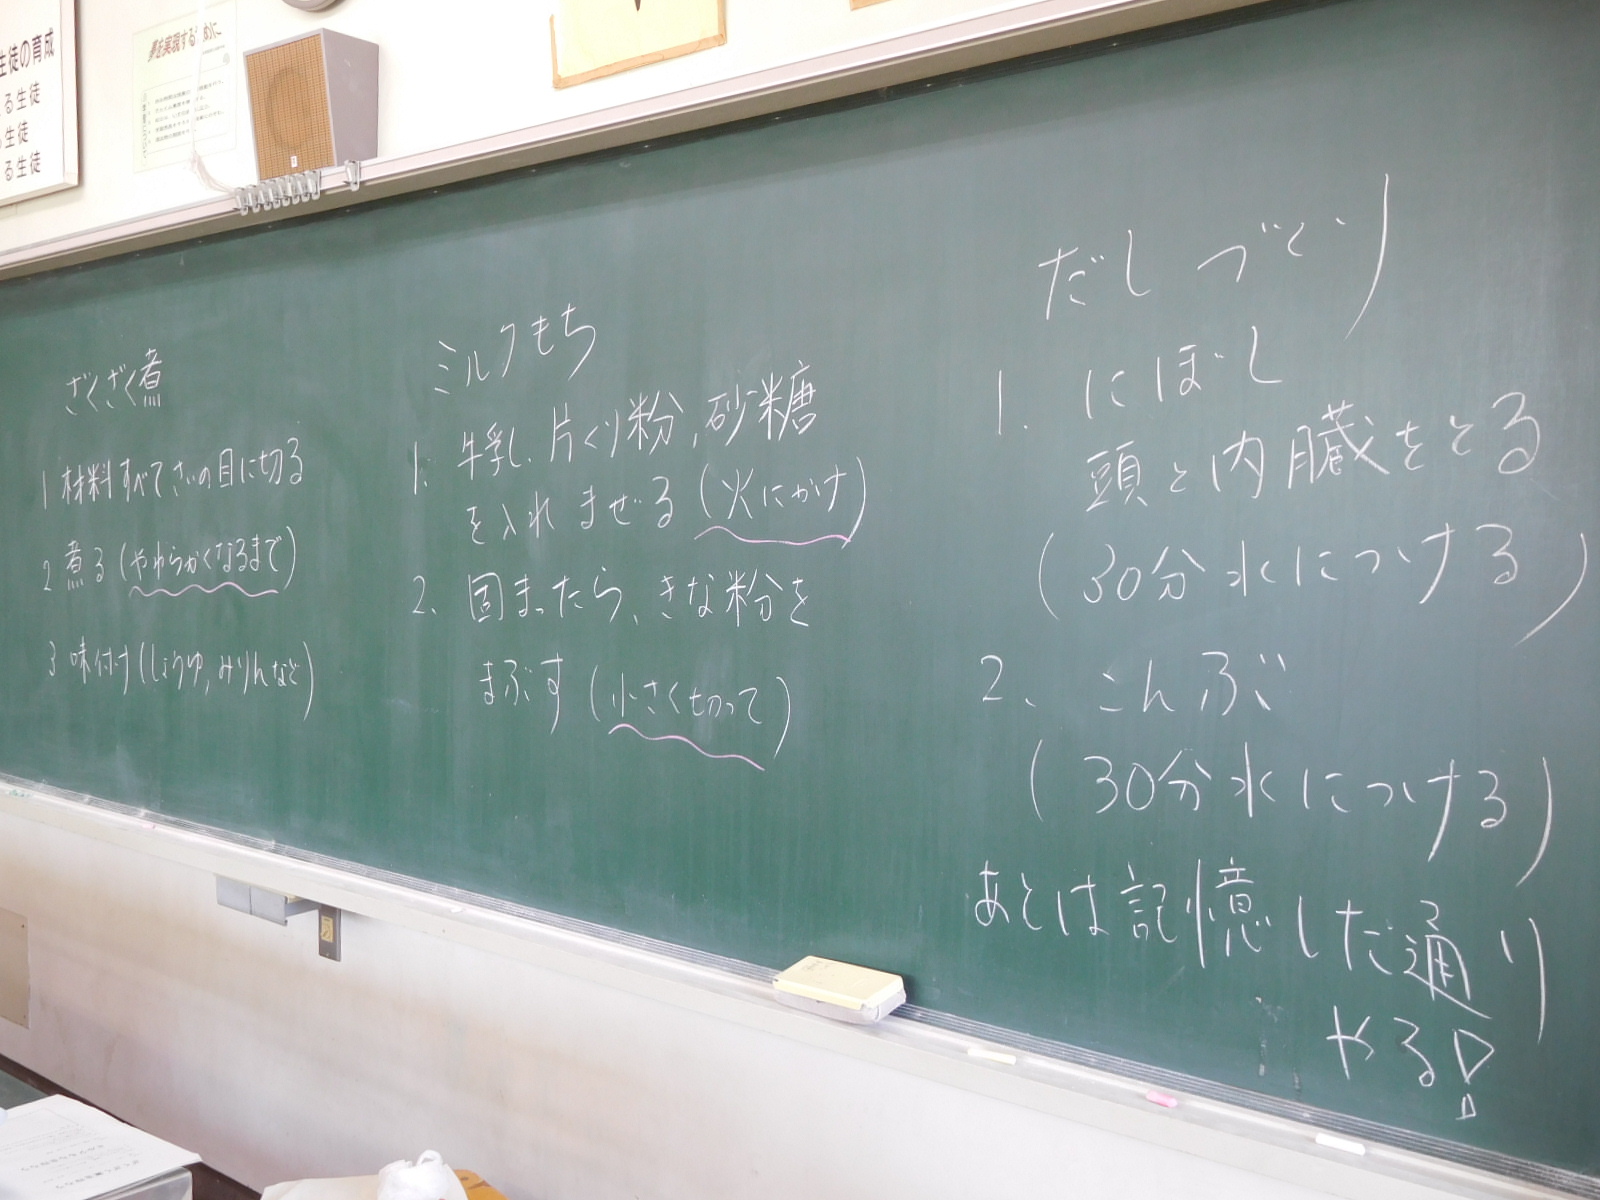 生徒の育成
る生徒
る生徒
る生徒
夢を実現する
ざくざく煮
1 材料すべてさいの目に切る
2 煮る(やわらかくなるまで)
3 味付け(しょうゆ,みりんなど)
ミルクもち
1. 牛乳、片くり粉,砂糖
を入れまぜる(火にかけ)
2、固まったら、きな粉を
まぶす(小さく切って)
だしづくり
1. にぼし
頭と内臓をとる
(30分水につける)
2、こんぶ
(30分水につける)
あとは記憶した通り
やる!